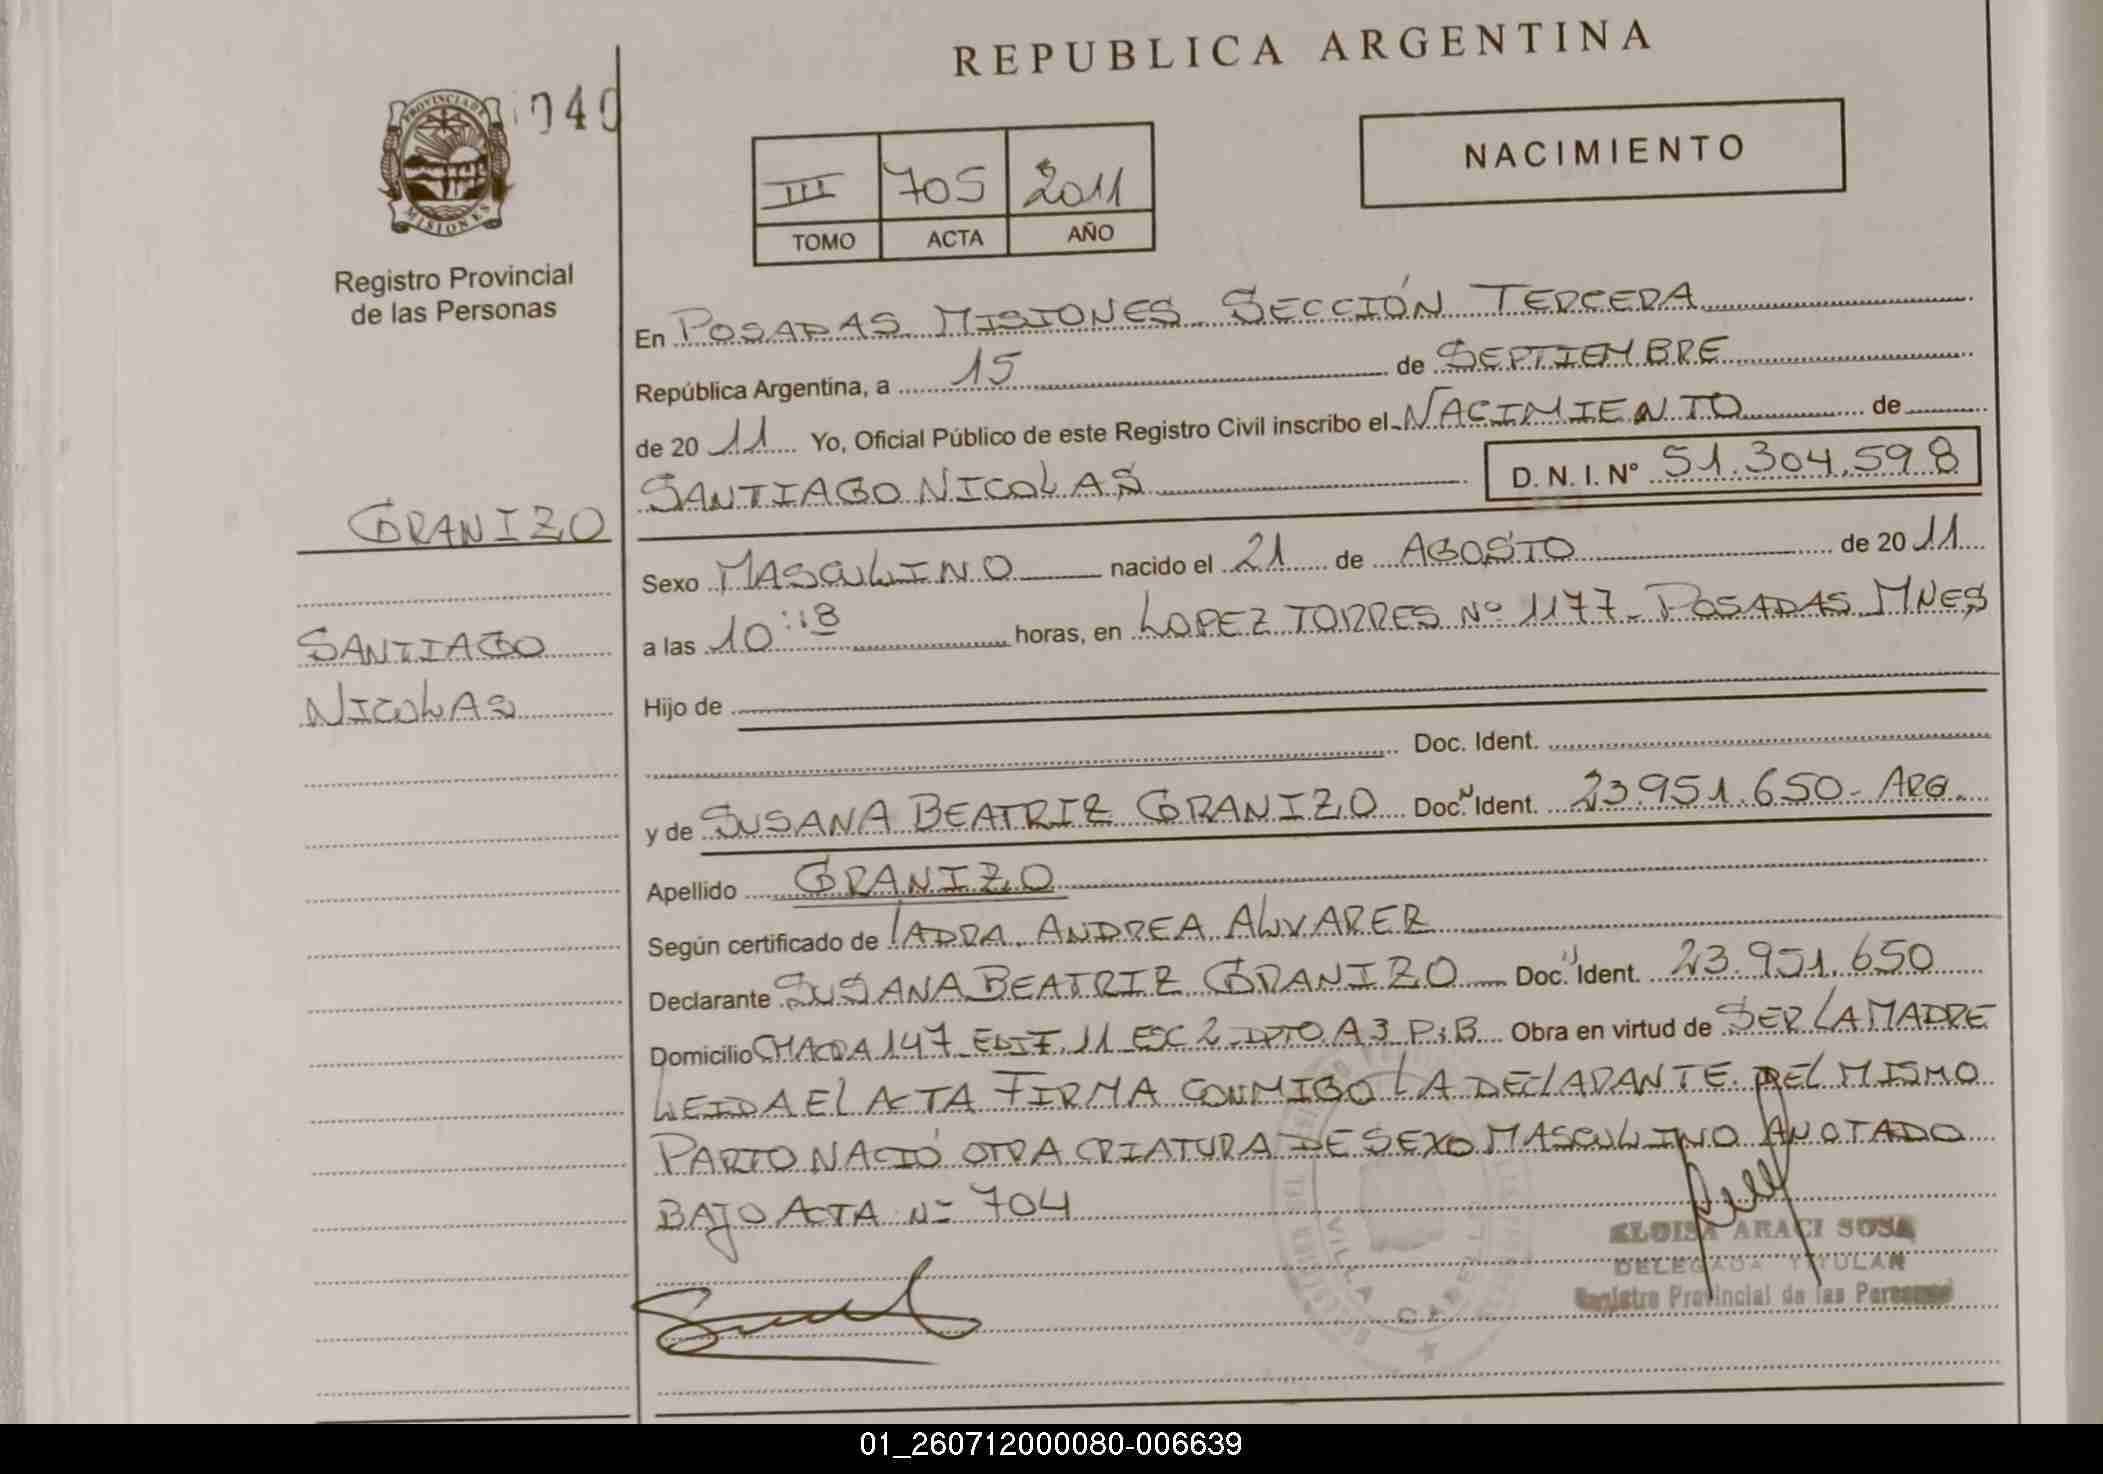 REPUBLICA ARGENTINA
PROVINCIA DE
MISIONES
040
Registro Provincial
de las Personas
NACIMIENTO
III 705 2011
TOMO ACTA AÑO
En POSADAS MISIONES SECCIÓN TERCERA
República Argentina, a 15 de SEPTIEMBRE
de 20 11 Yo, Oficial Público de este Registro Civil inscribo el NACIMIENTO de
SANTIAGO NICOLAS D. N. I. N° 51.304.598
GRANIZO
SANTIAGO
NICOLAS
Sexo MASCULINO nacido el 21 de AGOSTO de 20 11
a las 10:18 horas, en LOPEZ TORRES Nº 1177 - POSADAS MNES
Hijo de
Doc. Ident.
y de SUSANA BEATRIZ GRANIZO Doc. Ident. 23.951.650 - ARG.
Apellido GRANIZO
Según certificado de ANDREA ALVAREZ
Declarante SUSANA BEATRIZ GRANIZO Doc. Ident. 23.951.650
Domicilio CHACRA 147 EDIF. 11 ESC 2 DPTO A3 P:B Obra en virtud de SER LA MADRE
LEIDA EL ACTA FIRMA CONMIGO LA DECLARANTE. DEL MISMO
PARTO NACIÓ OTRA CRIATURA DE SEXO MASCULINO ANOTADO
BAJO ACTA Nº 704
ELOISA ARACI SOSA
DELEGADA TITULAR
Registro Provincial de las Personas
VILLA CABELLO
01_260712000080-006639